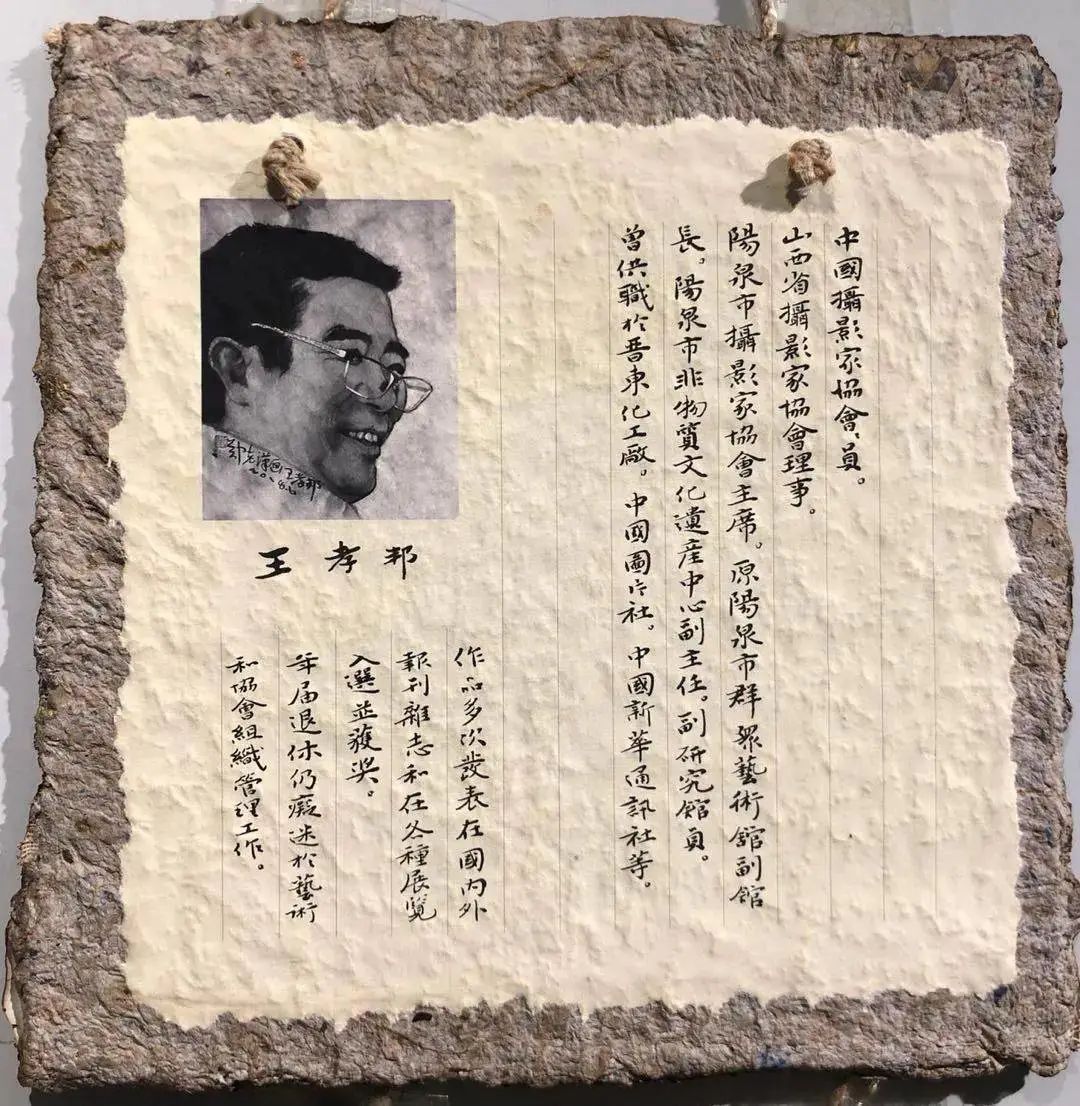 中國攝影家協會會員。
山西省攝影家協會理事。
陽泉市攝影家協會主席。原陽泉市群衆藝術舘副舘
長。陽泉市非物質文化遺産中心副主任。副研究舘員。
曾供職於晋東化工廠。中國圖片社。中國新華通訊社等。
王孝邦
作品多次發表在國内外
報刊雜志和在各種展覽
入選並獲奖。
年届退休仍癡迷於藝術
和協會組織管理工作。